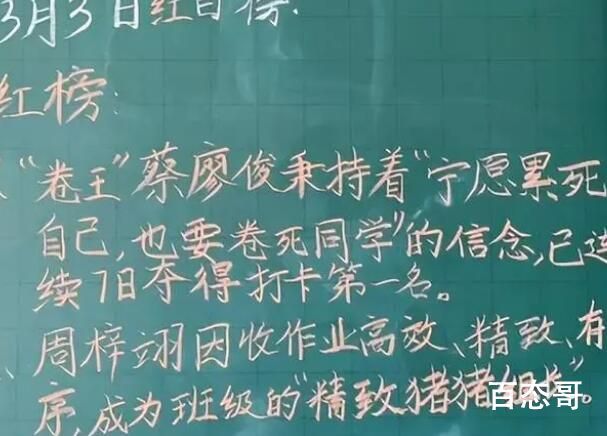 3月3日红白榜:
红榜:
"卷王"蔡廖俊秉持着"宁愿累死
自己,也要卷死同学"的信念,已连
续7日夺得打卡第一名。
周梓翊因收作业高效、精致、有
序,成为班级的"精致猪猪
百态哥